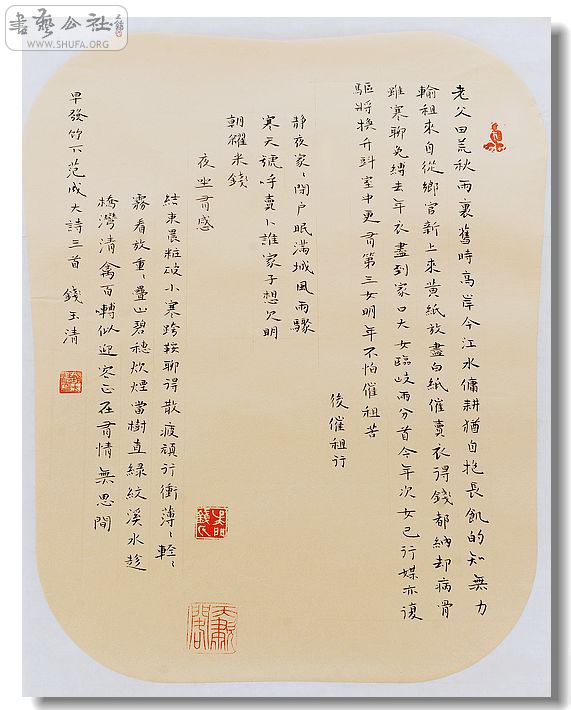 書藝公社
WWW.SHUFA.ORG
老父田荒秋雨裏舊時高岸今江水傭耕猶自抱長飢的知無力
輸租米自從鄉官新上來黃紙放盡白紙催賣衣得錢都納却病骨
雖寒聊免縛去年衣盡到家口大女臨岐兩分首今年次女已行媒亦復
驅將換升㪷室中更有第三女明年不怕催租苦
後催租行
靜夜家〻閉户眠滿城風雨驟
寒天號呼賣卜誰家子想欠明
朝糴米錢
夜坐有感
結束晨粧破小寒跨鞍聊得散疲頑行衝薄〻輕〻
霧看放重〻疊山碧穗炊煙當樹直綠紋溪水趁
橋灣清禽百囀似迎客正在有情無思間
早發竹下范成大詩三首 錢玉清